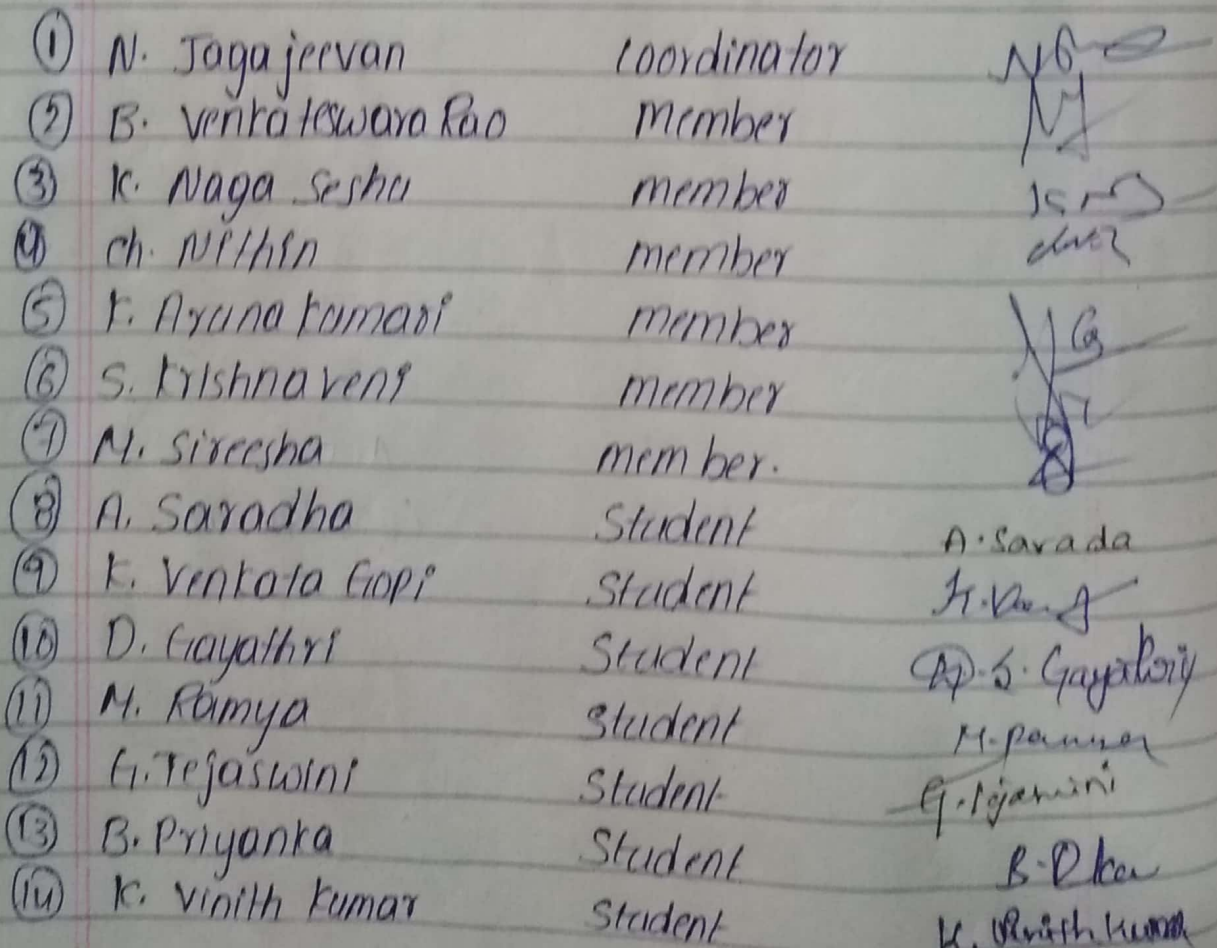 ① N. Jagajeevan Coordinator
② B. Venkateswara Rao Member
③ K. Naga Sesha member
④ Ch. Nithin member
⑤ K. Aruna Kumari member
⑥ S. Krishnaveni member
⑦ M. Sireesha member.
⑧ A. Saradha Student A. Sarada
⑨ K. Venkata Gopi Student
⑩ D. Gayathri Student Gayatri
⑪ M. Ramya Student
⑫ G. Tejaswini Student G. Tejaswini
⑬ B. Priyanka Student
⑭ K. Vinith Kumar Student K. Vinith Kumar